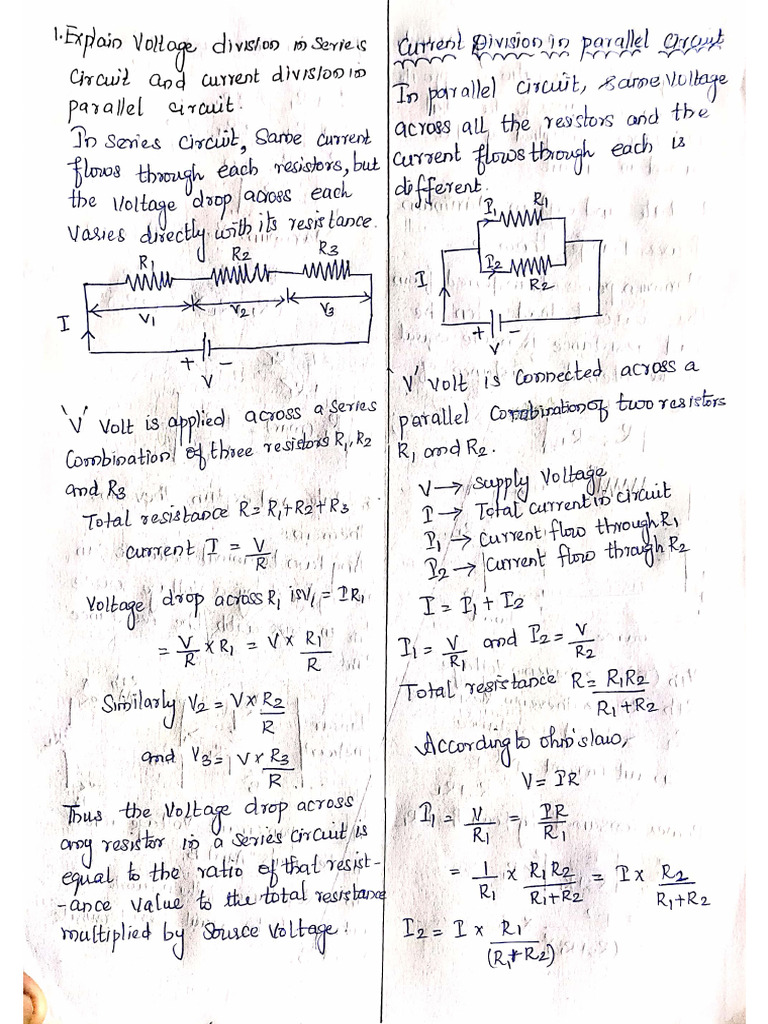 1. Explain Voltage division in series
circuit and current division in
parallel circuit.
In series circuit, same current
flows through each resistors, but
the voltage drop across each
varies directly with its resistance.
R1 R2 R3
V1 V2 V3
I
+ -
V
'V' Volt is applied across a series
Combination of three resistors R1, R2
and R3
Total resistance R = R1+R2+R3
current I = V/R
Voltage drop across R1 is V1 = IR1
= V/R × R1 = V × R1/R
Similarly V2 = V × R2/R
and V3 = V × R3/R
Thus the voltage drop across
any resistor in a series circuit is
equal to the ratio of that resist-
-ance value to the total resistance
multiplied by source voltage.
Current Division in parallel Circuit
In parallel circuit, same voltage
across all the resistors and the
current flows through each is
different.
I1 R1
I2
R2
I
+ -
V
V' Volt is connected across a
parallel Combination of two resistors
R1 and R2.
V → Supply Voltage
I → Total current in circuit
I1 → Current flow through R1
I2 → Current flow through R2
I = I1 + I2
I1 = V/R1 and I2 = V/R2
Total resistance R = R1R2/R1+R2
According to ohm's law,
V = IR
I1 = V/R1 = IR/R1
= 1/R1 × R1R2/R1+R2 = I × R2/R1+R2
I2 = I × R1/(R1+R2)